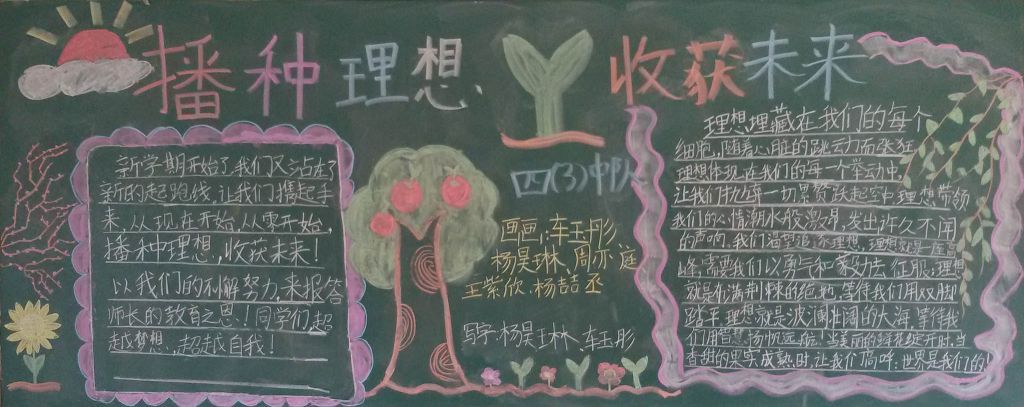 播种理想 收获未来
新学期开始了,我们又站在了
新的起跑线,让我们携起手
来,从现在开始,从零开始,
播种理想,收获未来!
以我们的不懈努力,来报答
师长的教育之恩!同学们,超
越梦想,超越自我!
四(3)中队
画画:车玉彤
杨昊琳、周亦庭
王紫欣、杨喆丞
写字:杨昊琳、车玉彤
理想埋藏在我们的每个
细胞,随着心脏的跳动而张狂
理想体现在我们的每一个举动中,
让我们抛弃一切 跃起空中理想带领
我们的心情潮水般 发出许久不闻
的声响,我们 理想,理想就是
峰,需要我们以勇气和 去征服;理想
就是布满荆棘的绝地,等待我们用双脚
踏平 理想就是波澜壮阔的大海,等待我
们用智慧扬帆远航,当美丽的鲜花绽开时,当
香甜的果实成熟时 让我们高呼:世界是我们的!